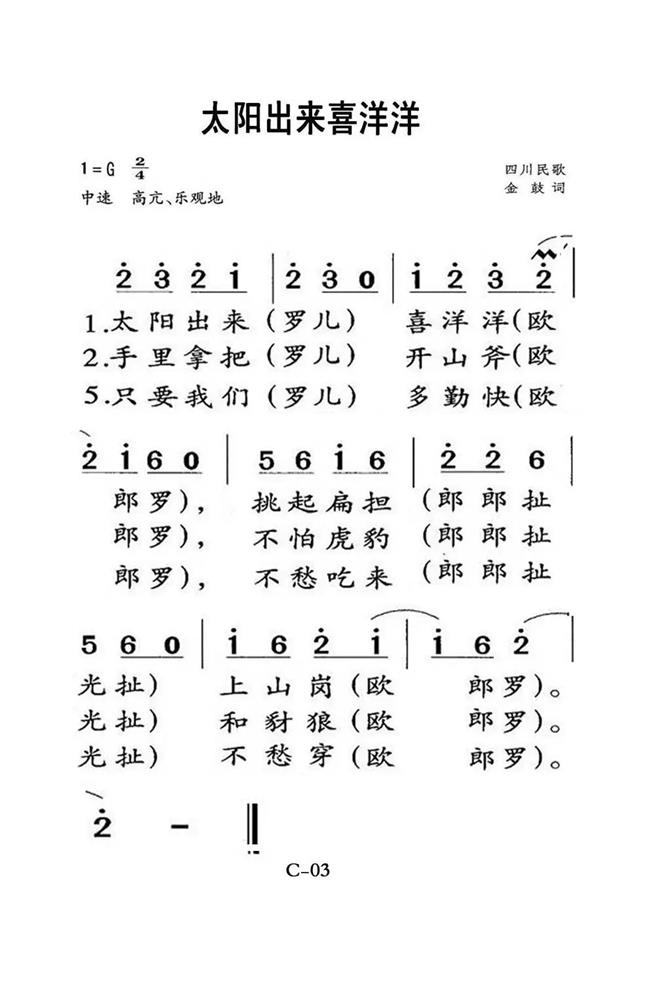 太阳出来喜洋洋
1=G 2/4
四川民歌
中速 高亢、乐观地
金鼓词
2̇ 3̇ 2̇ 1̇ | 2̇ 3̇ 0 | 1̇ 2̇ 3̇ 2̇ |
1.太阳出来(罗儿) 喜洋洋(欧
2.手里拿把(罗儿) 开山斧(欧
5.只要我们(罗儿) 多勤快(欧
2̇ 1̇ 6 0 | 5 6 1̇ 6 | 2̇ 2̇ 6
郎罗), 挑起扁担(郎郎扯
郎罗), 不怕虎豹(郎郎扯
郎罗), 不愁吃来(郎郎扯
5 6 0 | 1̇ 6 2̇ 1̇ | 1̇ 6 2̇ |
光扯) 上山岗(欧 郎罗)。
光扯) 和豺狼(欧 郎罗)。
光扯) 不愁穿(欧 郎罗)。
2̇ - ‖
C-03